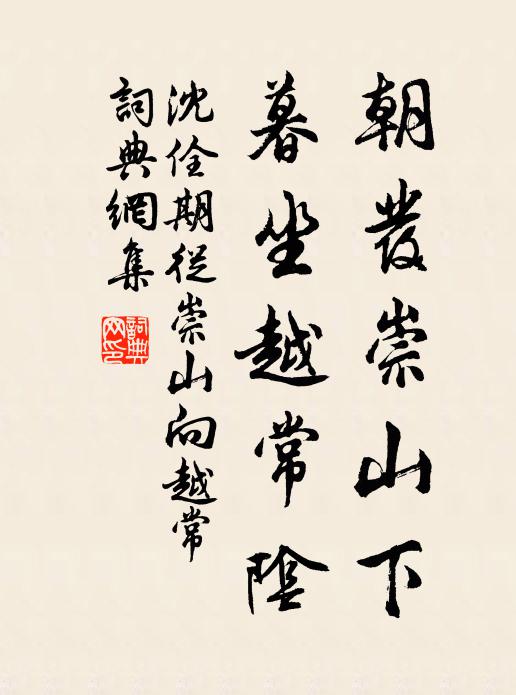 朝發崇山下
暮坐越常陰
沈佺期從崇山向越常
詞典網集
詞典网印